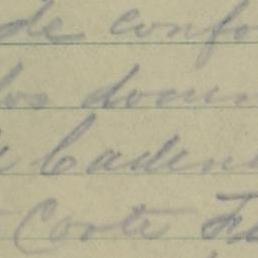 de confo
los docum
Caden
Corte